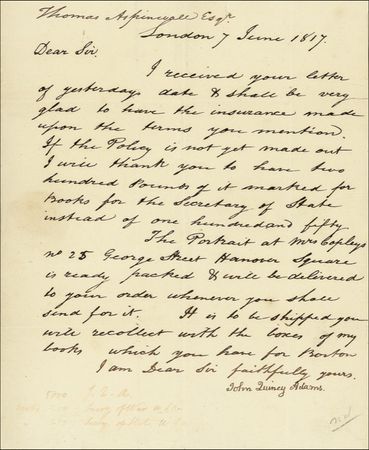 Thomas Aspinwall Esqr.
London 7 June 1817.
Dear Sir.
I received your letter
of yesterdays date & shall be very
glad to have the insurance made
upon the terms you mention.
If the Policy is not yet made out
I will thank you to have two
hundred Pounds of it marked for
Books for the Secretary of State
instead of one hundred and fifty
The Portrait at Mrs Copleys
No 25 George Street Hanover Square
is ready packed & will be delivered
to your order whenever you shall
send for it. It is to be shipped you
will recollect with the boxes of my
books which you have for Boston
I am Dear Sir faithfully yours.
John Quincy Adams.
5000